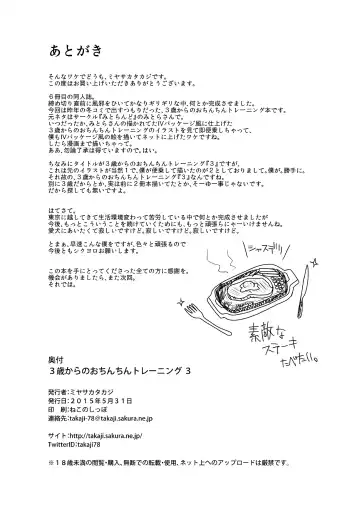 あとがき
そんなワケでどうも、ミヤサカタカジです。
この度はお買い上げいただきありがとうございます。
６冊目の同人誌。
締め切り直前に風邪をひいてかなりギリギリな中、何とか完成させました。
今回は昨年の冬コミで出すつもりだった、３歳からのおちんちんトレーニング本です。
元ネタはサークル『みとらんど』のみとらさんで、
いつだったか、みとらさんの描かれてたTVパッケージ風に仕上げた
３歳からのおちんちんトレーニングのイラストを見て即便乗しちゃって、
僕もTVパッケージ風の絵を描いてネットに上げたワケですね。
したら漫画まで描いちゃって。
ああ、勿論了承は得ていますので。はい。
ちなみにタイトルが３歳からのおちんちんトレーニング『３』ですが、
これは元のイラストが当然１で、僕が便乗して描いたのが２としておりまして。僕が。勝手に。
それ故の、３歳からのおちんちんトレーニング『３』なんですね。
別に３歳だからとか、実は前に２冊本描いてたとか、そーゆー事じゃないです。
だから探しても無いですよ。
はてさて。
東京に越してきて生活環境変わって苦労している中で何とか完成させましたが
今後、もっとこういうことを続けていくためにも、もっと頑張らにゃーいけませんね。
愛犬にあいたくて寂しいですけど。寂しいですけど。寂しいですけど。
とまぁ、早速こんな僕をですが、色々と頑張るので
今後ともシクヨロお願いします。
この本を手にとってくださった全ての方に感謝を。
機会がありましたら、また次回。
それでは。
素敵な
ステーキ
たべたい。
奥付
３歳からのおちんちんトレーニング ３
発行者：ミヤサカタカジ
発行日：２０１５年５月３１日
印　刷：ねこのしっぽ
連絡先：takaji-78@takaji.sakura.ne.jp
サイト：http://takaji.sakura.ne.jp/
TwitterID：takaji78
※１８歳未満の閲覧・購入、無断での転載・使用、ネット上へのアップロードは厳禁です。